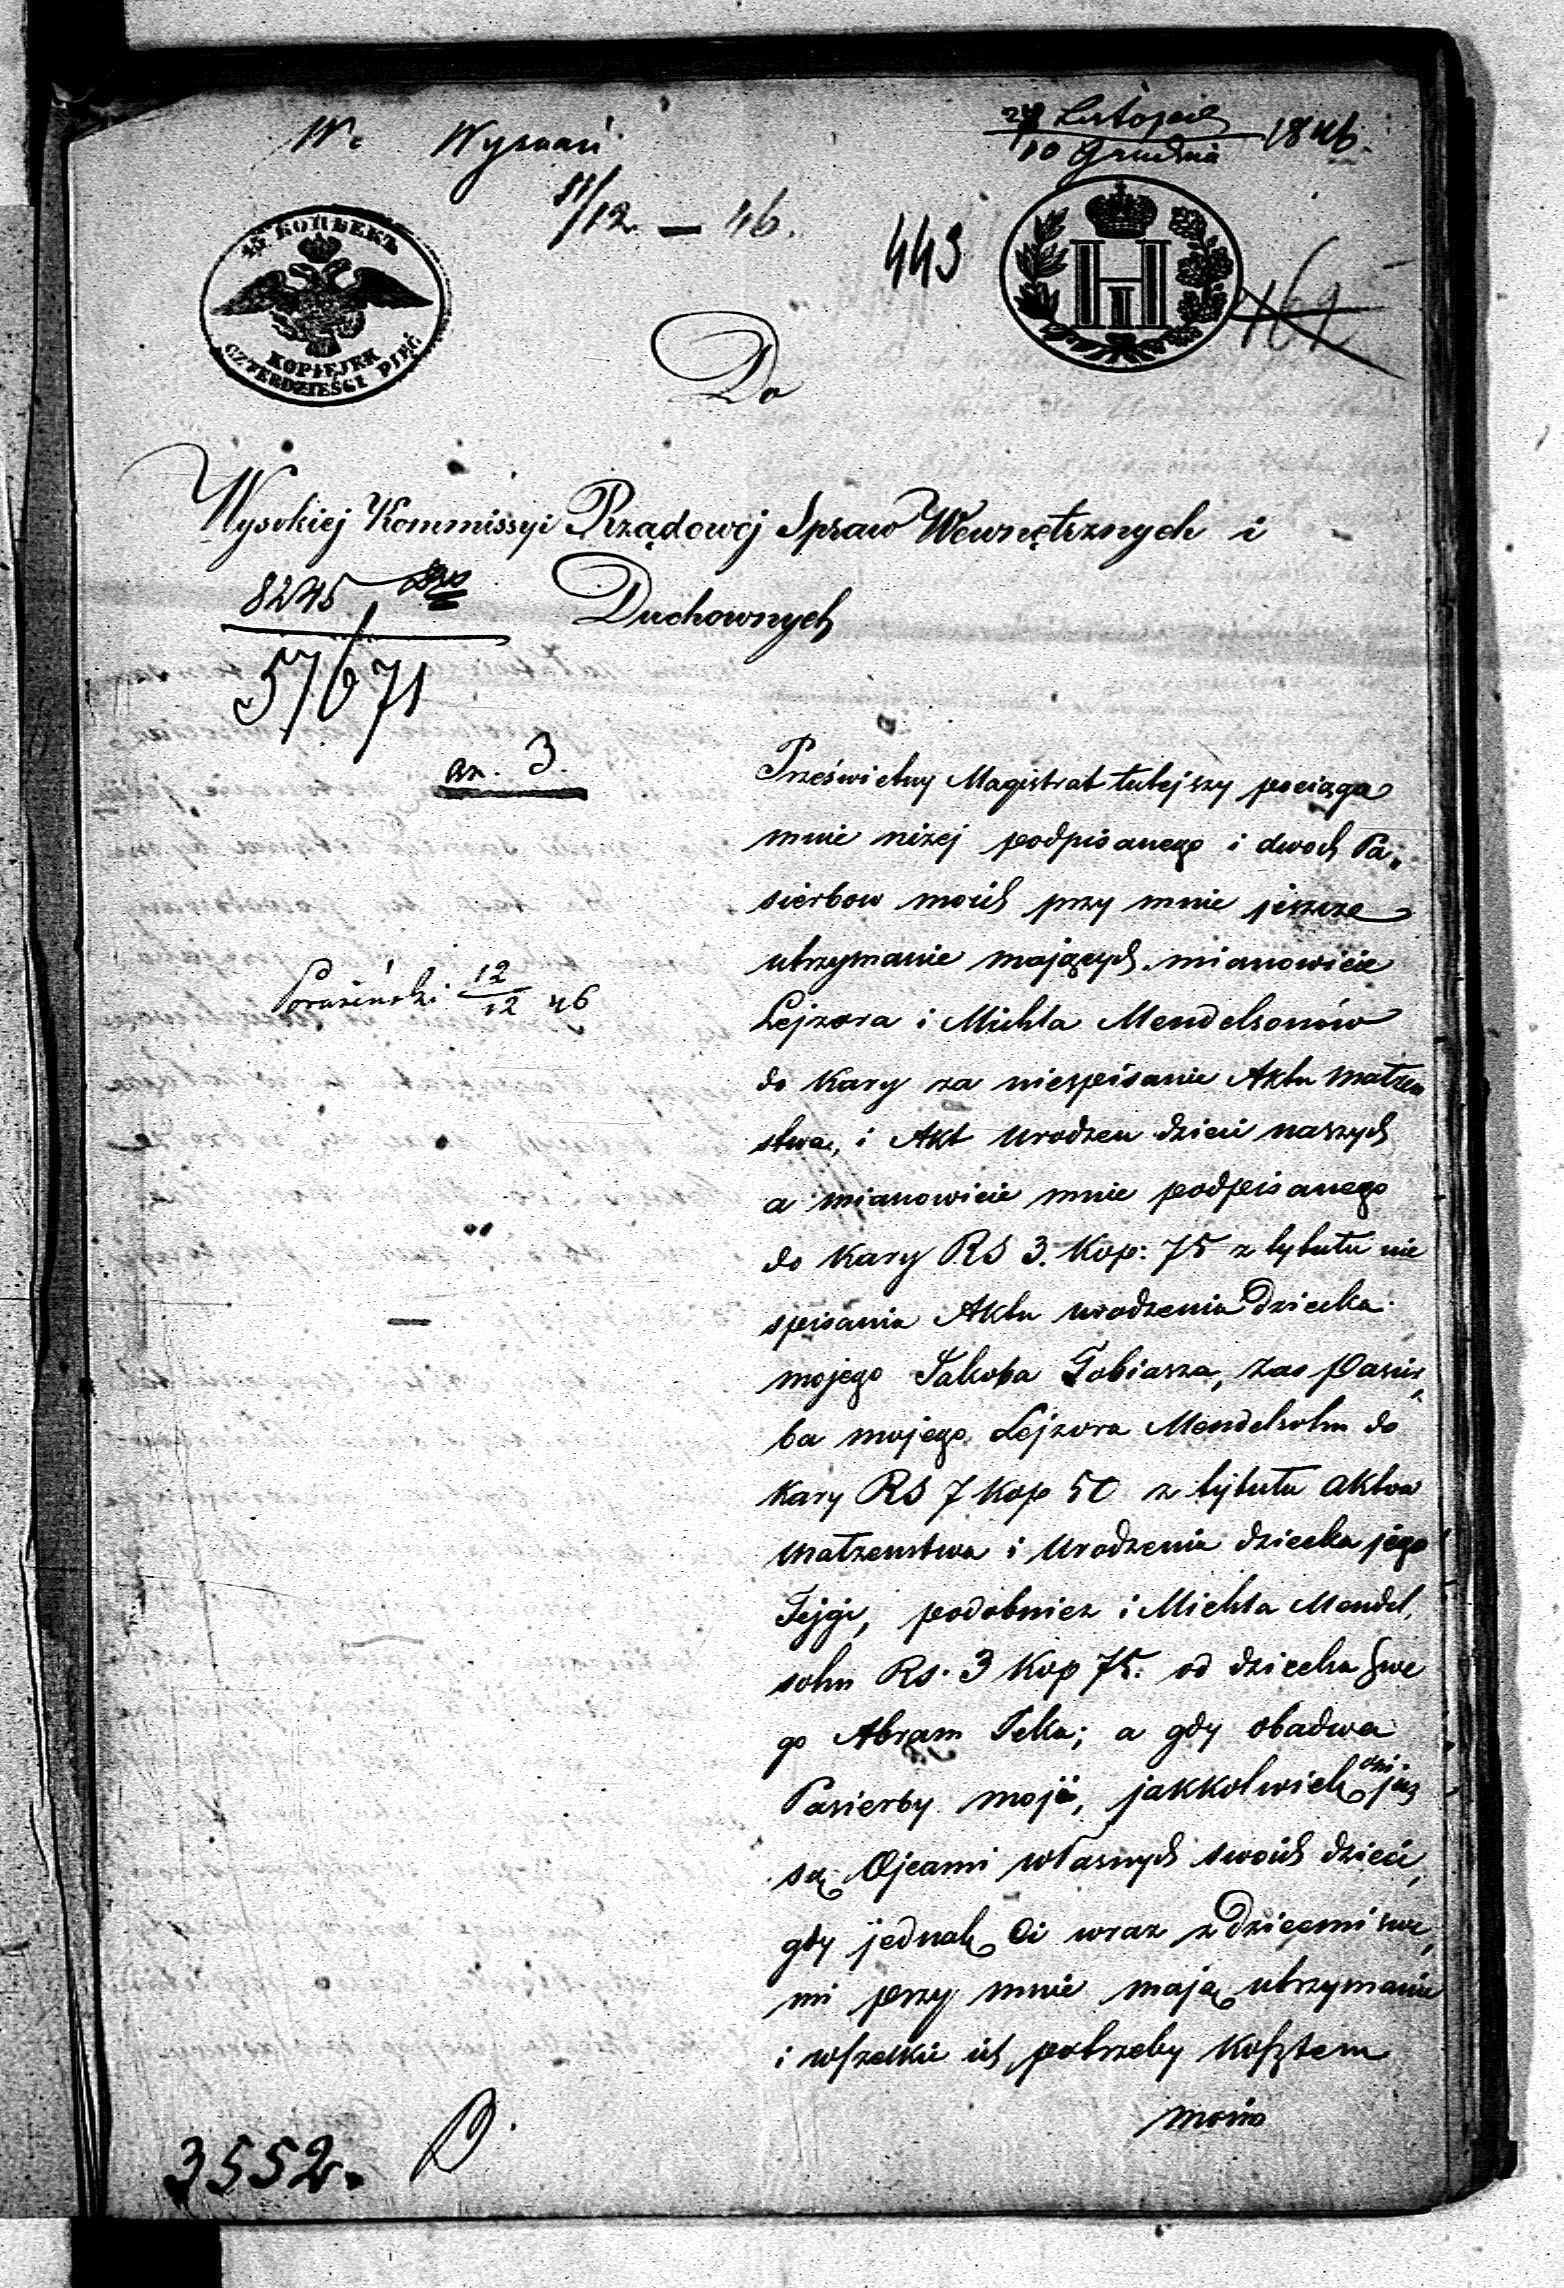 W. Wyznań
28 Listopad
10 Grudnia 1846.
11/12 – 46.
443
162
45. КОПѢЕКЪ
KOPIEJEK
CZTERDZIEŚCI PIĘĆ
Do
Wysokiej Kommissyi Rządowéj Spraw Wewnętrznych i
Duchownych
8245
57671
an. 3.
Prześwietny Magistrat tutejszy pociąga
mnie niżej podpisanego i dwoch Pa„
sierbow moich przy mnie jeszcze
utrzymanie mających mianowicie
Lejzora i Michla Mendelsonów
do kary za niespisanie Aktu małżen
stwa, i Akt urodzen dzieci naszych
a mianowicie mnie podpisanego
do kary RS 3. Kop: 75 z tytułu nie
spisania Aktu urodzenia Dziecka
mojego Jakoba Tobiasza, zas Pasier„
ba mojego Lejzora Mendelsohn do
kary RS 7 kop 50 z tytułu aktow
małzenstwa i Urodzenia dziecka jego
Fejgi, podobniez i Michla Mendel„
sohn Rs. 3 Kop 75. od dziecka Swe
go Abram Icka; a gdy obadwa
Pasierby moje, jakkolwiek oni juz
są Ojcami własnych swoich dzieci,
gdy jednak Ci wraz z Dziećmi swe„
mi przy mnie mają utrzymanie
i wszelkie ich potrzeby kosztem
moim
12/12 46
3552.